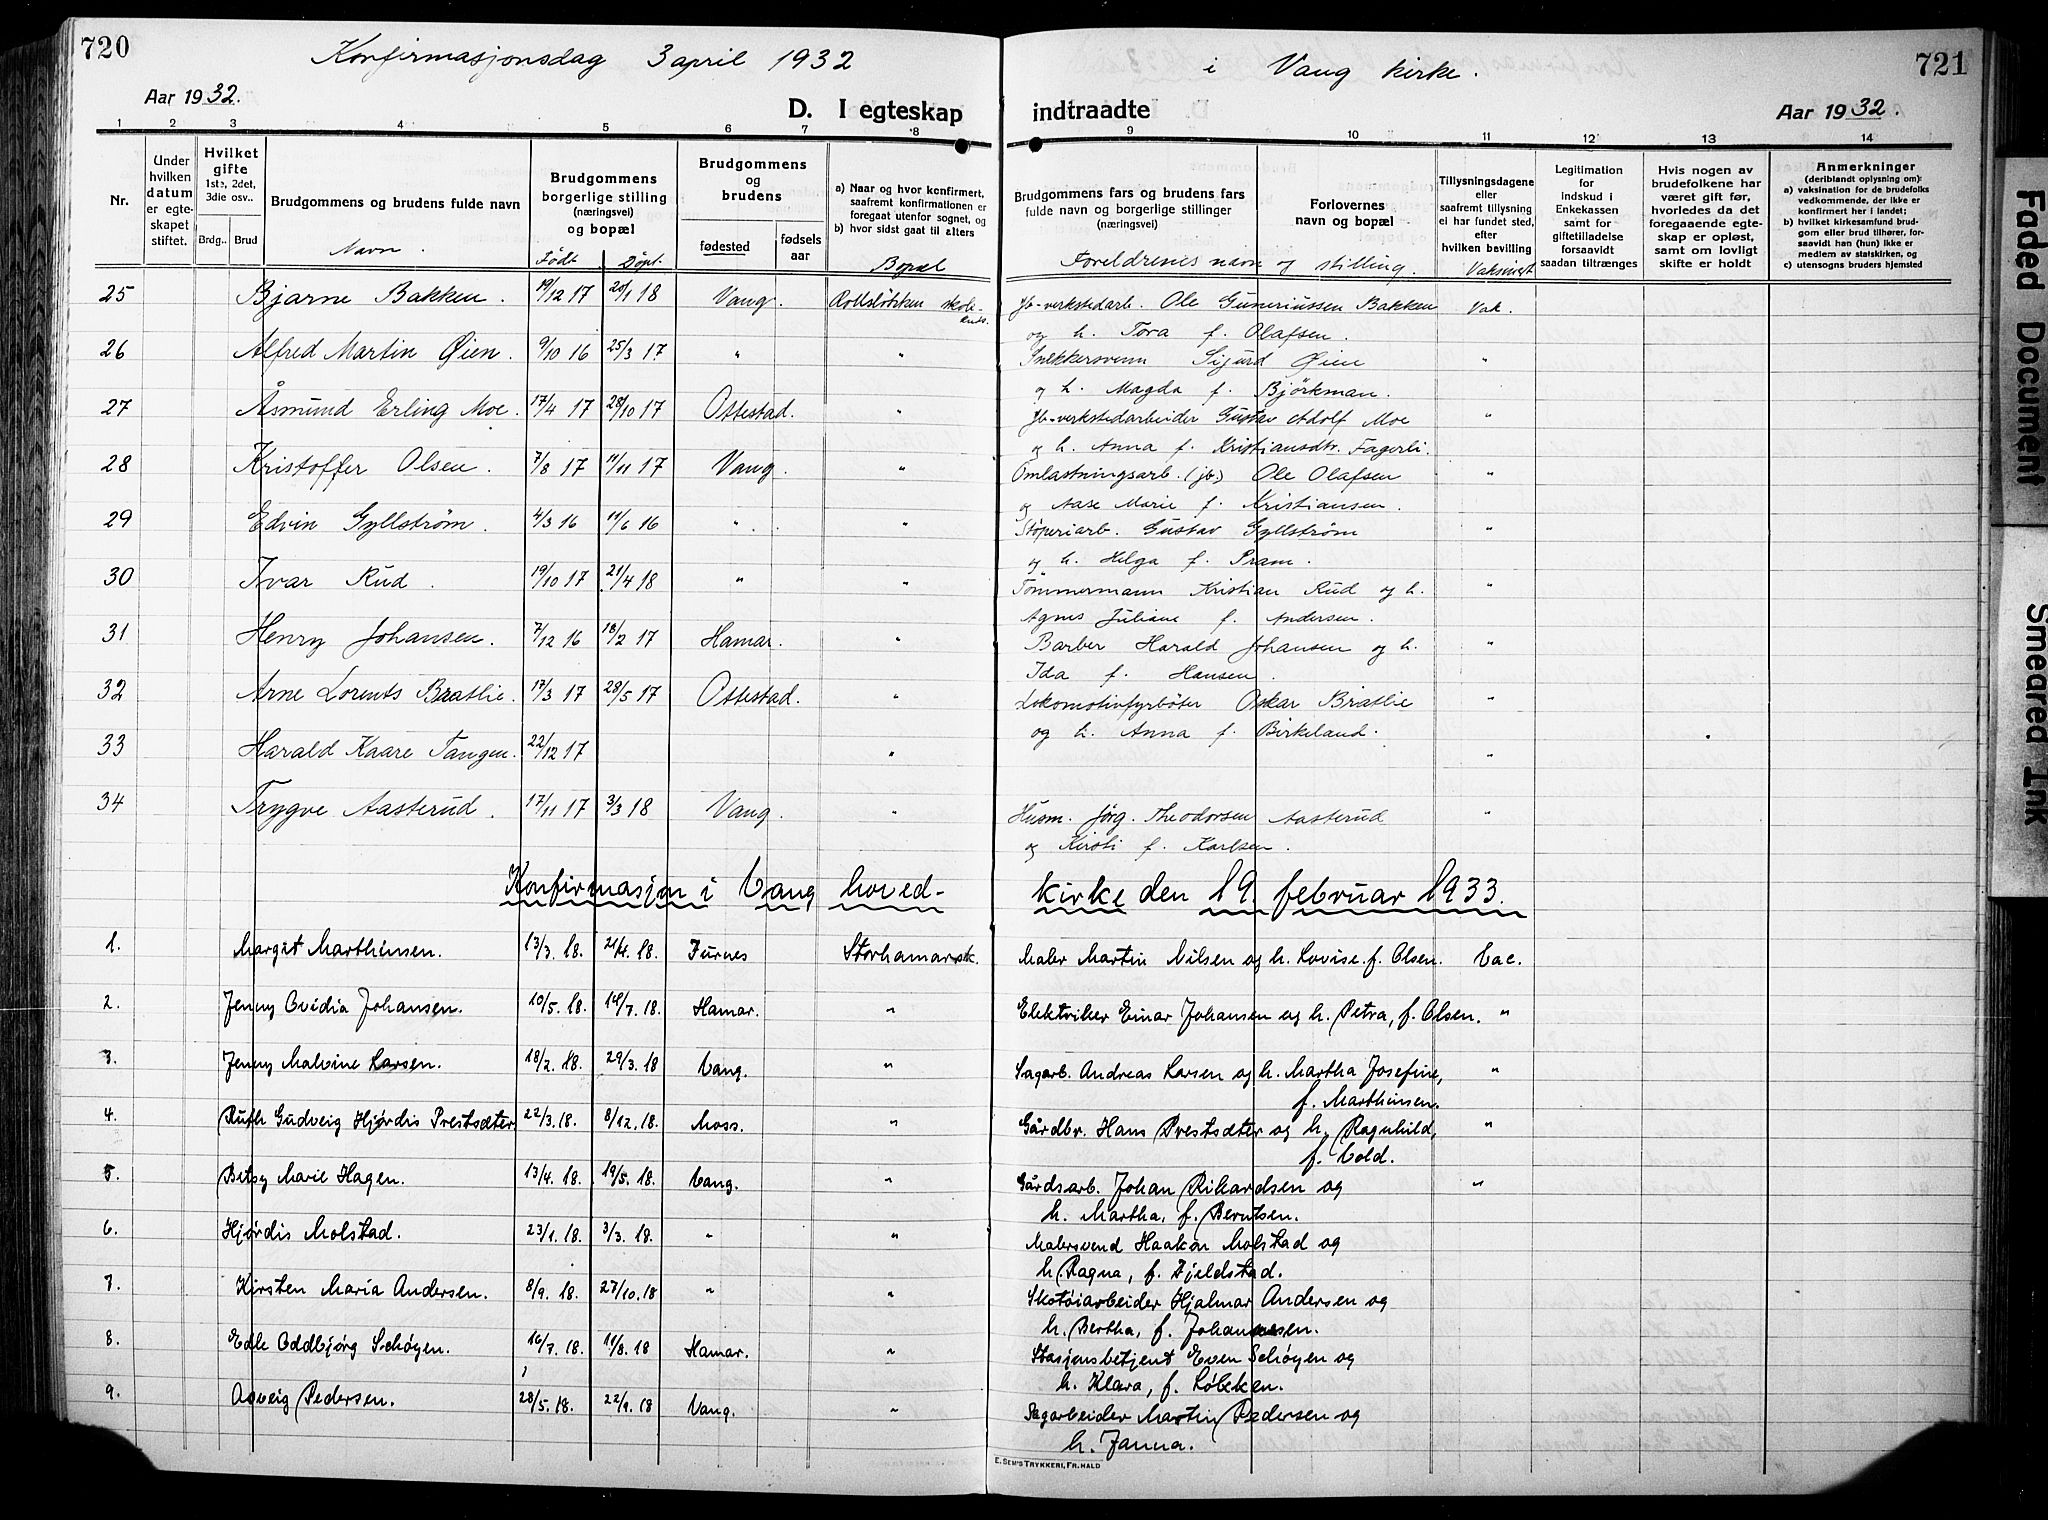 720
Konfirmasjonsdag 3 april 1932
i Vang kirke.
721
Aar 1932.
D. I egteskap
indtraadte
Aar 1932.
1 2 3 4 5 6 7 8 9 10 11 12 13 14
Nr.
Under hvilken datum er egteskapet stiftet.
Hvilket gifte 1ste, 2det, 3die osv..
Brdg.. Brud
Brudgommens og brudens fulde navn
Navn.
Brudgommens borgerlige stilling (næringsvei) og bopæl
Født. Døpt.
Brudgommens og brudens
fødested
fødsels aar
a) Naar og hvor konfirmert, saafremt konfirmationen er foregaat utenfor sognet, og
b) hvor sidst gaat til alters
Bopæl
Brudgommens fars og brudens fars fulde navn og borgerlige stillinger (næringsvei)
Forlovernes navn og bopæl
Foreldrenes navn og stilling.
Tillysningsdagene eller saafremt tillysning ei har fundet sted, efter hvilken bevilling
Vaksinert
Legitimation for indskud i Enkekassen samt for giftetilladelse forsaavidt saadan tiltrænges
Hvis nogen av brudefolkene har været gift før, hvorledes da det foregaaende egteskap er opløst, samt om lovligt skifte er holdt
Anmerkninger (deriblandt oplysning om):
a) vaksination for de brudefolks vedkommende, der ikke er konfirmert her i landet;
b) hvilket kirkesamfund brudgom eller brud tilhører, forsaavidt han (hun) ikke er medlem av statskirken, og
c) utensogns bruders hjemsted
25 Bjarne Bakken. 19/12 17 20/1 18 Vang. Rollsløkken skolekrets. Jb-verkstedarb. Ole Guneriussen Bakken Vak.
og h. Tora f. Olafsen.
26 Alfred Martin Øien. 9/10 16 25/3 17 " " Snekkersvenn Sigurd Øien "
og h. Magda f. Björkman.
27 Åsmund Erling Moe. 17/4 17 28/10 17 Ottestad. " Jb-verkstedarbeider Gustav Adolf Moe "
og h. Anna f. Kristiansdtr. Fagerli.
28 Kristoffer Olsen. 7/8 17 11/11 17 Vang. " Omlastningsarb. (jb.) Ole Olafsen "
og Aase Marie f. Kristiansen.
29 Edvin Gyllstrøm. 4/3 16 11/6 16 " " Støperiarb. Gustav Gyllstrøm "
og h. Helga f. Pram.
30 Ivar Rud. 19/10 17 21/4 18 " " Tömmermann Kristian Rud og h. "
Agnes Juliane f. Andersen.
31 Henry Johansen. 7/12 16 18/2 17 Hamar. " Barber Harald Johansen og h. "
Ida f. Hansen.
32 Arne Lorents Bratlie. 17/3 17 28/5 17 Ottestad. " Lokomotivfyrbøter Oskar Bratlie "
og h. Anna f. Birkeland.
33 Harald Kaare Tangen. 22/12 17 " "
34 Trygve Aasterud. 17/11 17 3/3 18 Vang. " Husm. Jørg. Theodorsen Aasterud "
og Kirsti f. Karlsen.
Konfirmasjon i Vang hoved-kirke den 19. februar 1933.
1. Margit Marthinsen. 13/3. 18. 21/4. 18. Furnes Storhamarsk. Maler Martin Nilsen og h. Lovise. f. Olsen. Vac.
2. Jenny Ovidia Johansen. 10/5. 18. 14/7. 18. Hamar. " Elektriker Einar Johansen og h. Petra, f. Olsen. "
3. Jenny Malvine Larsen. 18/2. 18. 29/3. 18 Vang. " Sagarb. Andreas Larsen og h. Martha Josefine, "
f. Marthinsen.
4. Ruth Gudveig Hjørdis Prestsæter 22/3. 18. 8/12. 18. Moss. " Gårdbr. Hans Prestsæter og h. Ragnhild, "
f. Vold.
5. Betsy Marie Hagen. 13/4. 18. 19/5. 18. Vang. " Gårdsarb. Johan Rikardsen og "
h. Martha, f. Berntsen.
6. Hjørdis Molstad. 23/1. 18. 3/3. 18. " " Malersvend Haakon Molstad og
h. Ragna, f. Fjeldstad.
7. Kirsten Maria Andersen. 8/9. 18. 27/10. 18 " " Skotøiarbeider Hjalmar Andersen og
h. Bertha, f. Johannesen.
8. Edle Oddbjørg Schøyen. 16/7. 18. 11/8. 18 Hamar. " Stasjonsbetjent Even Schøyen og
h. Klara, f. Løbeken.
9. Aaveig Pedersen. 28/5. 18. 22/9. 18 Vang. " Sagarbeider Martin Pedersen og
h. Janna.
E. SEM'S TRYKKERI, FR.HALD
Faded Document
Smeared Ink